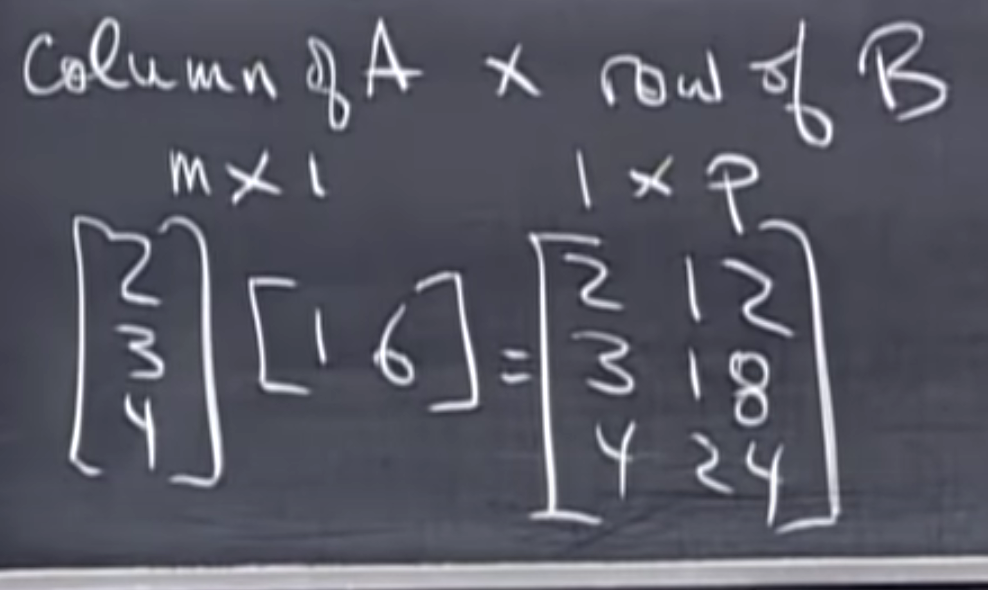 Column of A × row of B
m × 1 1 × p
[2 3 4] [1 6] = [2 12 3 18 4 24]